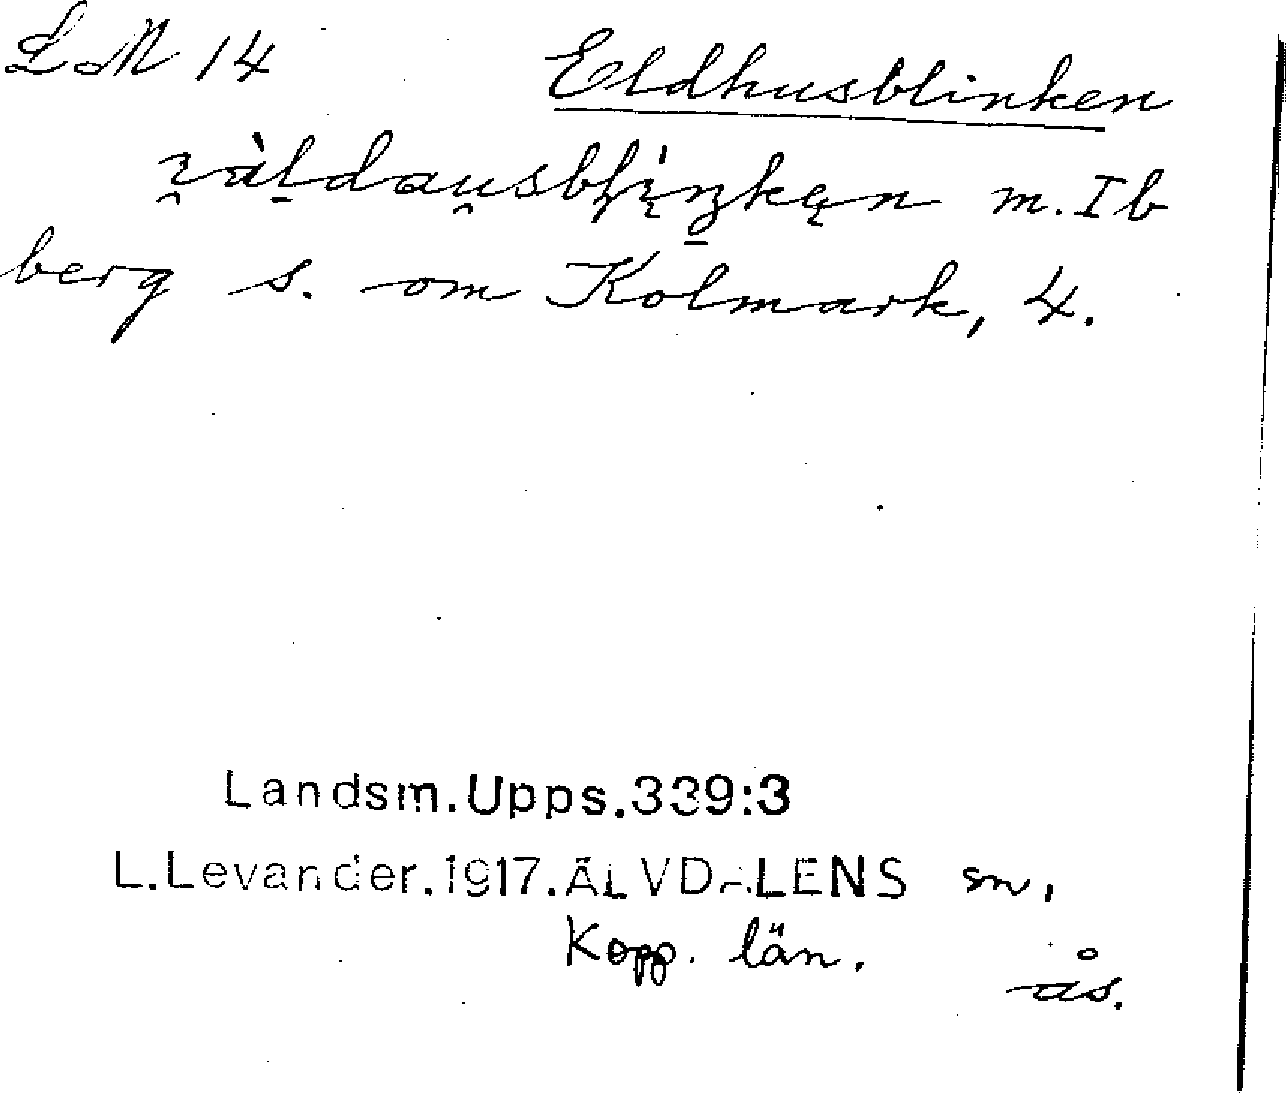 L M 14 Eldhusblinken
m. Ib
berg s. om Kolmark, 4.
Landsm.Upps.339:3
L.Levander.1917.ÄLVDALENS sn,
Kopp. län.
ås.